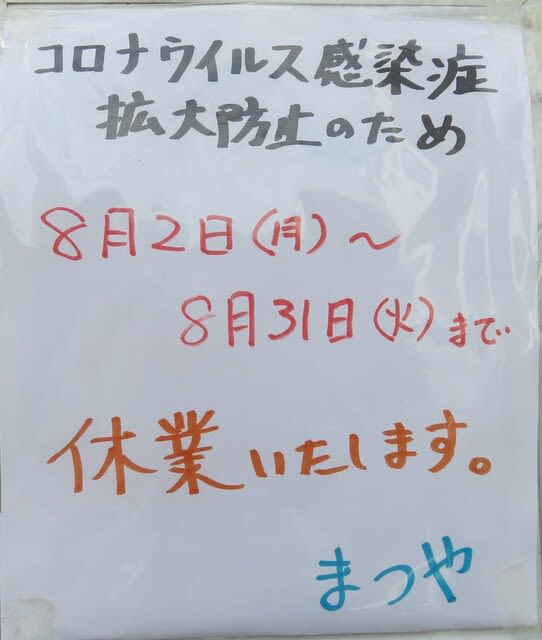 コロナウイルス感染症
拡大防止のため
8月2日(月)～
8月31日(火)まで
休業いたします。
まつや